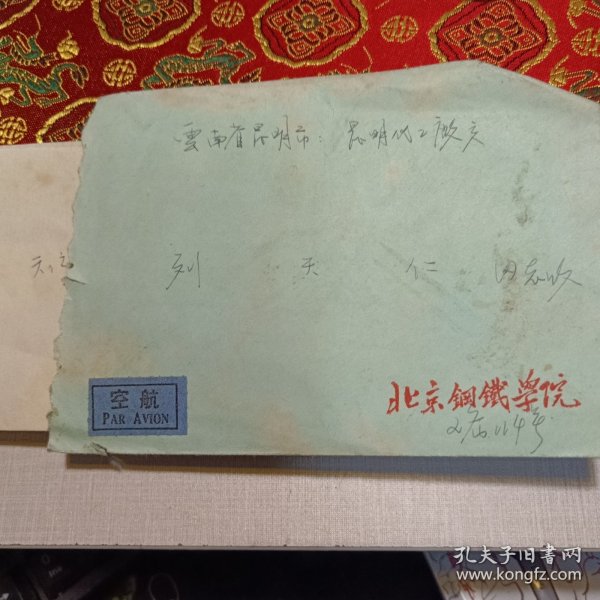 雲南省昆明市：昆明化工廠交
刘 天 仁 同志收
空航
PAR AVION
北京鋼鐵學院
孔夫子旧书网
www.kongfz.com